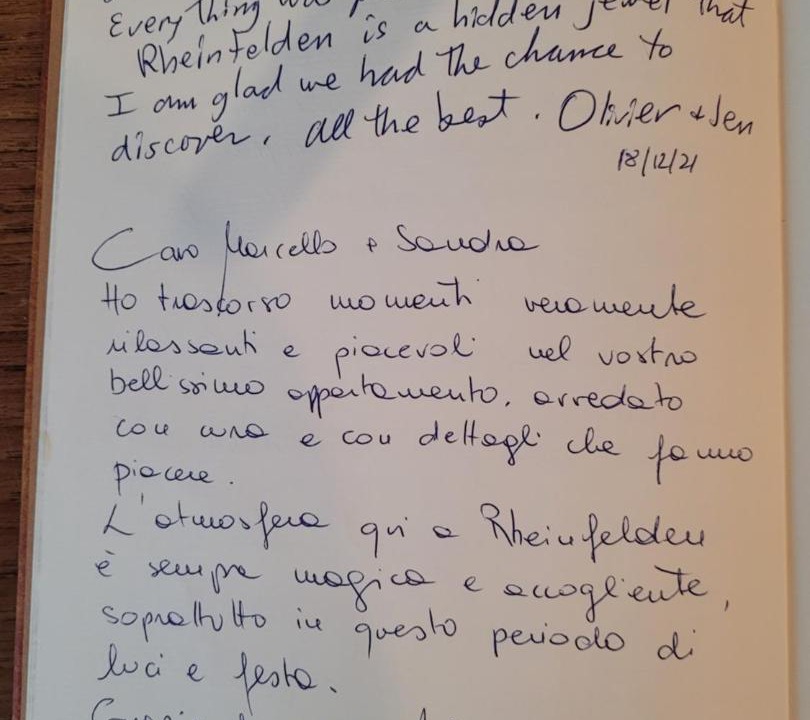 Everything was
Rheinfelden is a hidden jewel that
I am glad we had the chance to
discover, all the best. Olivier + Jen
18/12/21
Caro Marcello + Sandra
Ho trascorso momenti veramente
rilassanti e piacevoli nel vostro
bellissimo appartamento, arredato
con cura e con dettagli che fanno
piacere.
L'atmosfera qui a Rheinfelden
è sempre magica e accogliente,
soprattutto in questo periodo di
luci e festa.